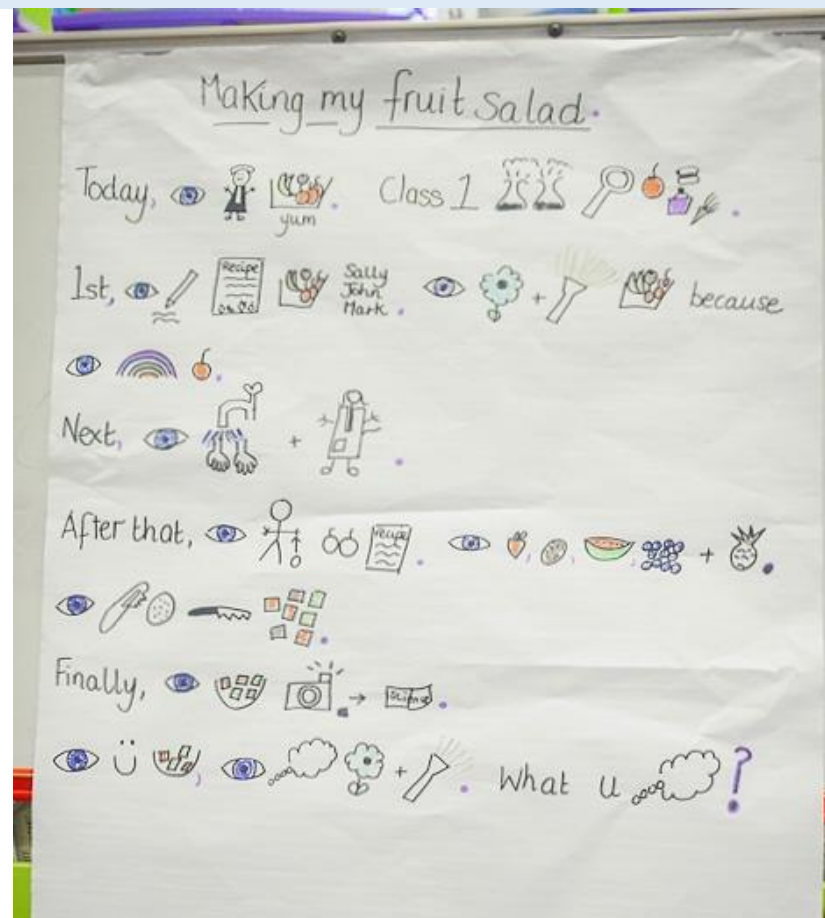 Making my fruit salad.
Today, yum. Class 1
1st, Recipe Sally John Mark. because
Next,
After that, recipe.
Finally,
What u ?